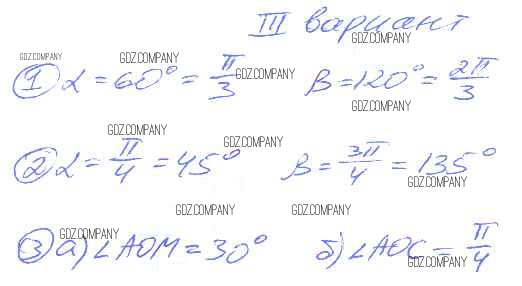 III вариант
GDZ.COMPANY
GDZ.COMPANY GDZ.COMPANY
① α = 60° = π/3 GDZ.COMPANY β = 120° = 2π/3
GDZ.COMPANY
GDZ.COMPANY
GDZ.COMPANY
② α = π/4 = 45° β = 3π/4 = 135°
GDZ.COMPANY
GDZ.COMPANY GDZ.COMPANY
GDZ.COMPANY
③ а) ∠AOM = 30° б) ∠AOC = π/4
GDZ.COMPANY